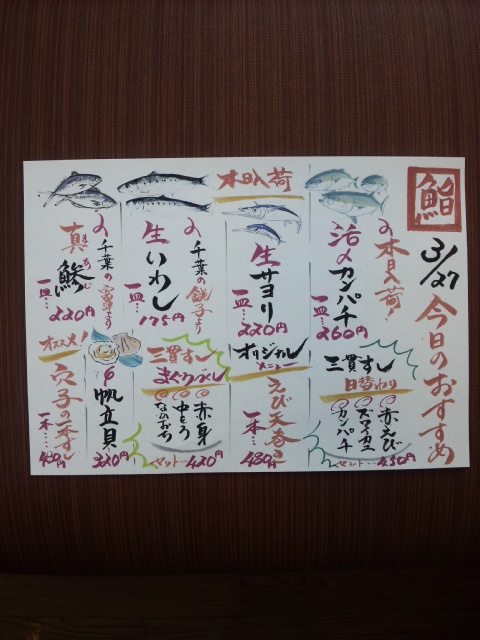 鮨
3/27
今日のおすすめ
本日入荷!
活〆カンパチ
一皿…260円
本日入荷
生サヨリ
一皿…220円
千葉の銚子より
生いわし
一皿…175円
千葉の富津より
真鯵
まあじ
一皿…220円
三貫すし
日替わり
赤えび
ズワイガニ
カンパチ
セット…450円
オリジナル
メニュー
えび天巻き
一本…480円
三貫すし
まぐろづくし
赤身
中とろ
なかおち
セット…420円
帆立貝
320円
オススメ!
穴子の一本すし
一本…480円